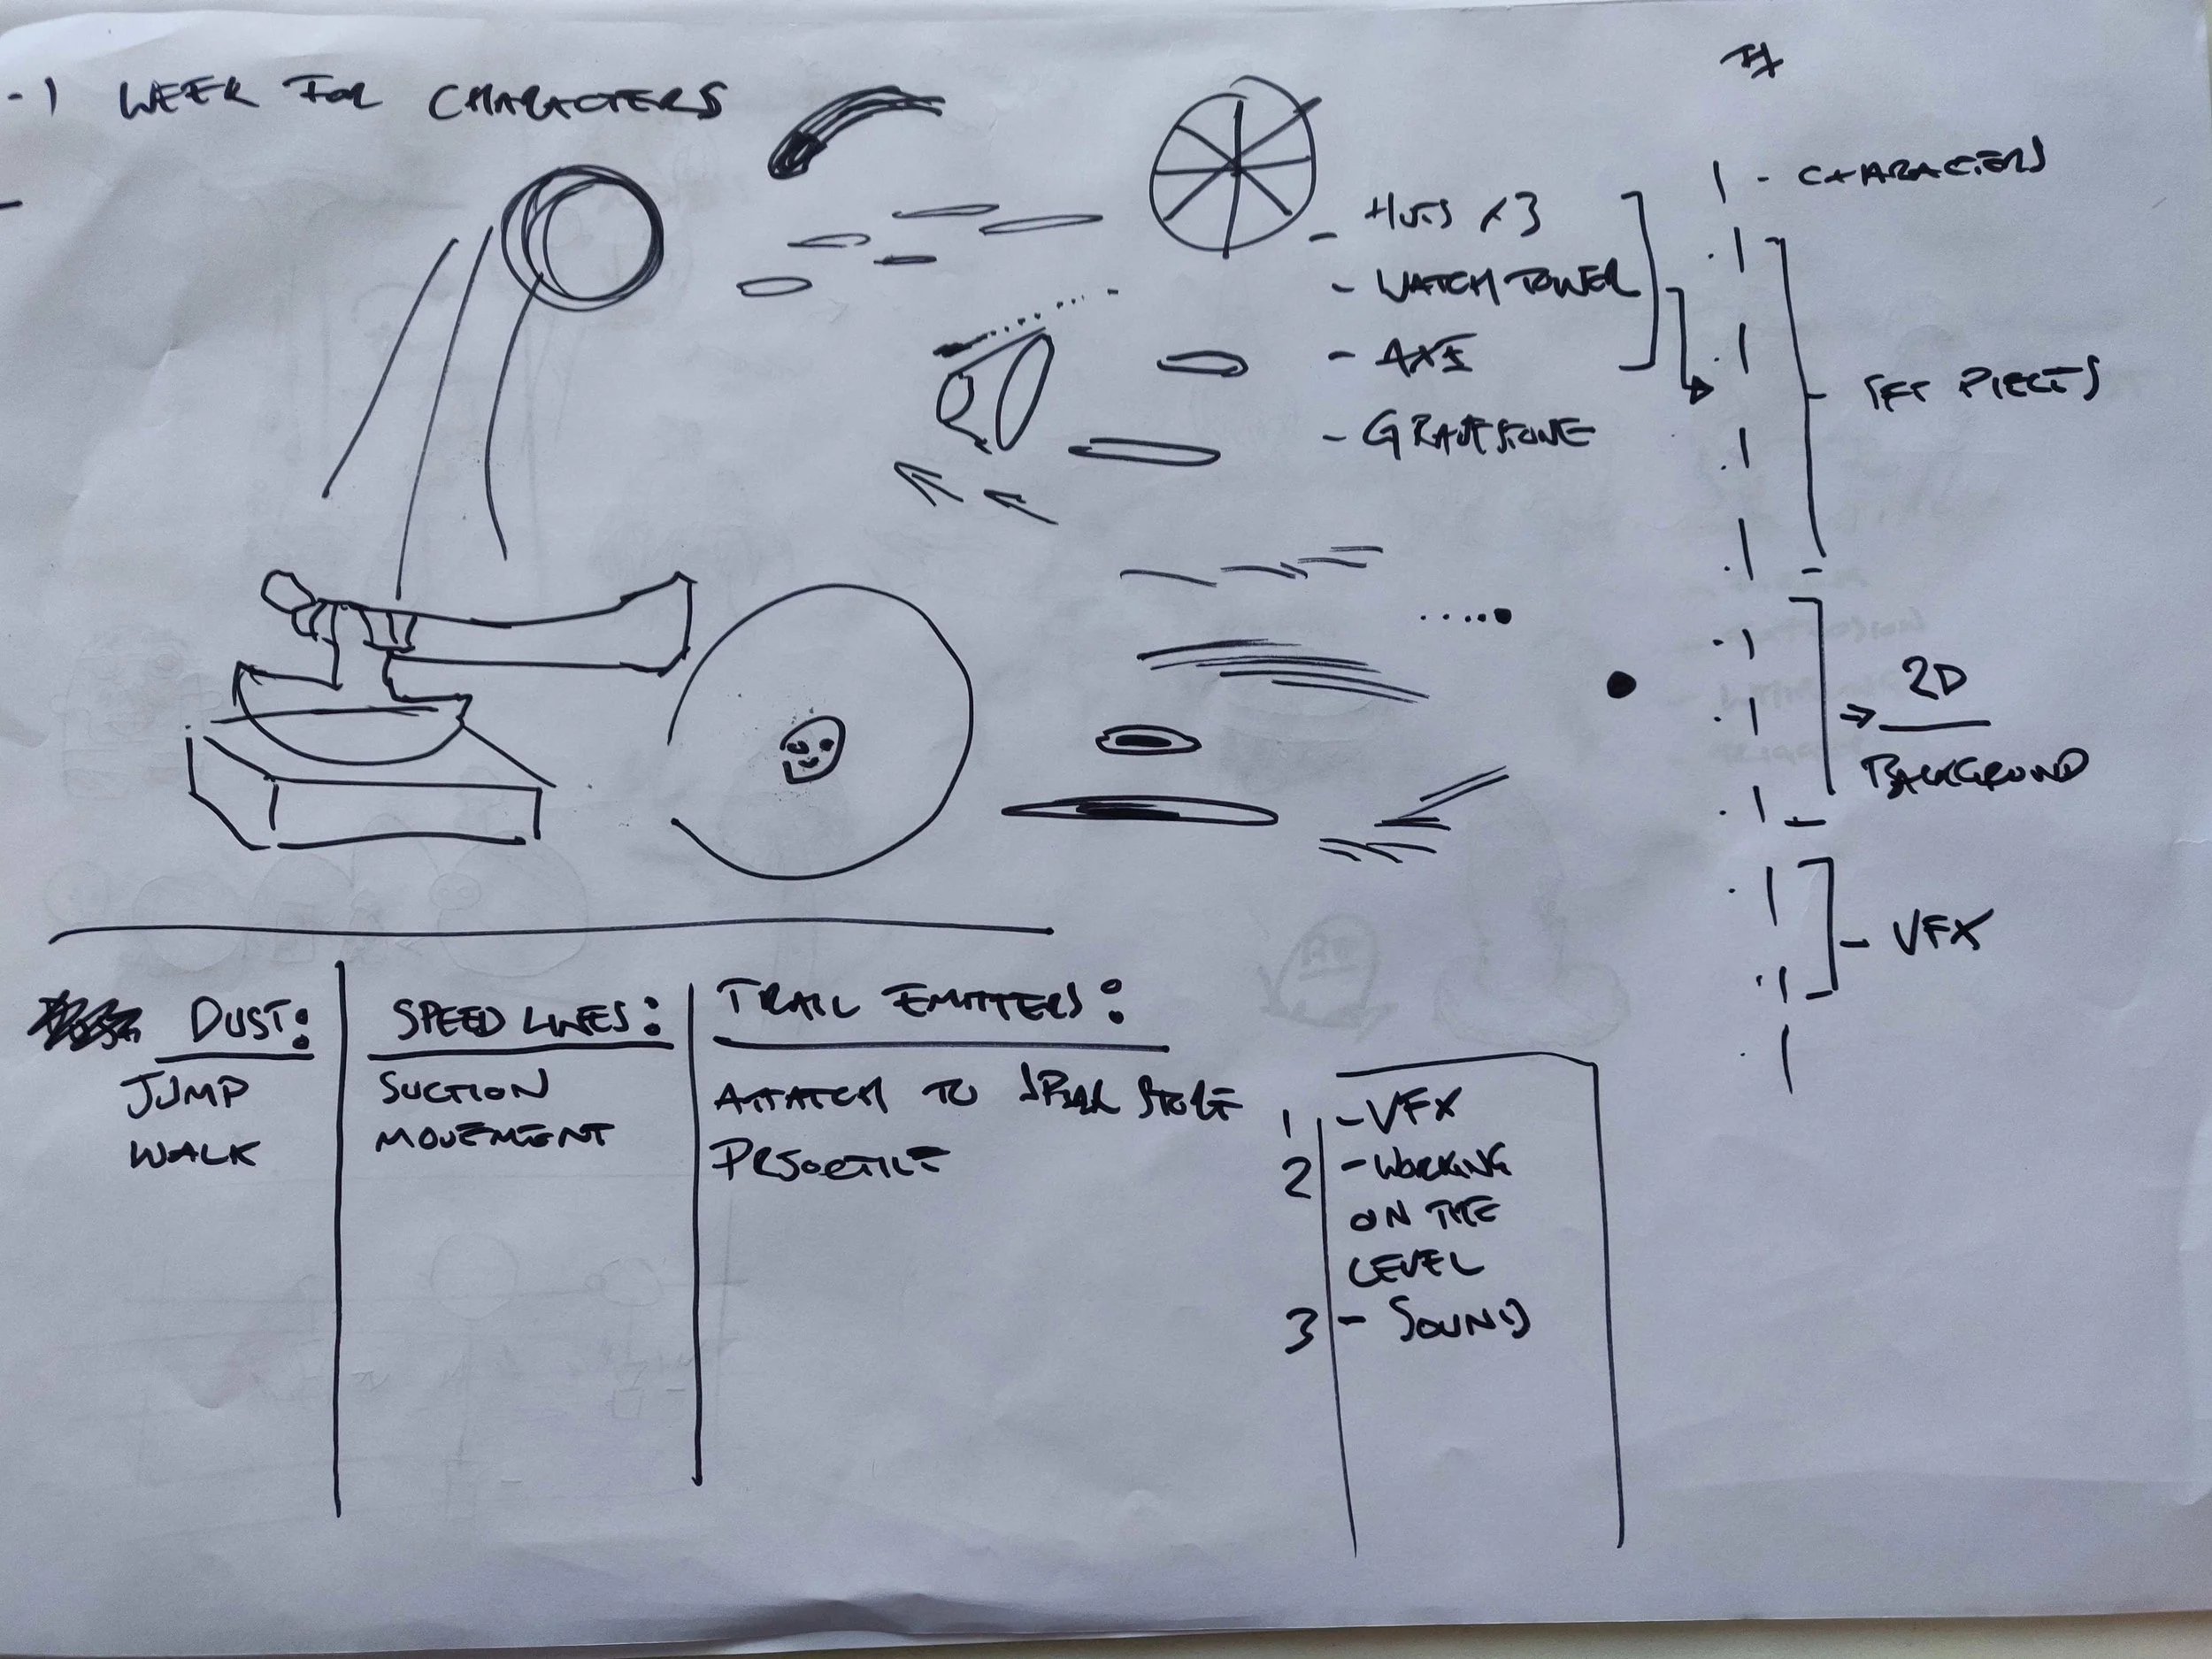 - 1 WEEK FOR CHARACTERS
- HUTS x3
- WATCH TOWER
- AXE
- GRAVESTONE
1 - CHARACTERS
. 1
. 1
. 1
. 1
- SET PIECES
. 1
. 1
. 1
⇒ 2D
BACKGROUND
. 1
. 1
- VFX
. 1
DUST:
JUMP
WALK
SPEED LINES:
SUCTION
MOVEMENT
TRAIL EMITTERS:
ATTATCH TO
PRJOCTILE
1 - VFX
2 - WORKING
ON THE
LEVEL
3 - SOUND